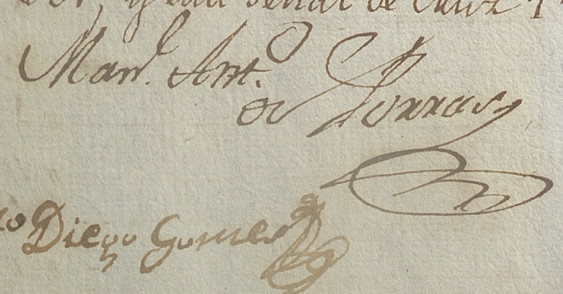 y una señal de Cruz
Man.l Ant.o
de Porras
Diego Gomes